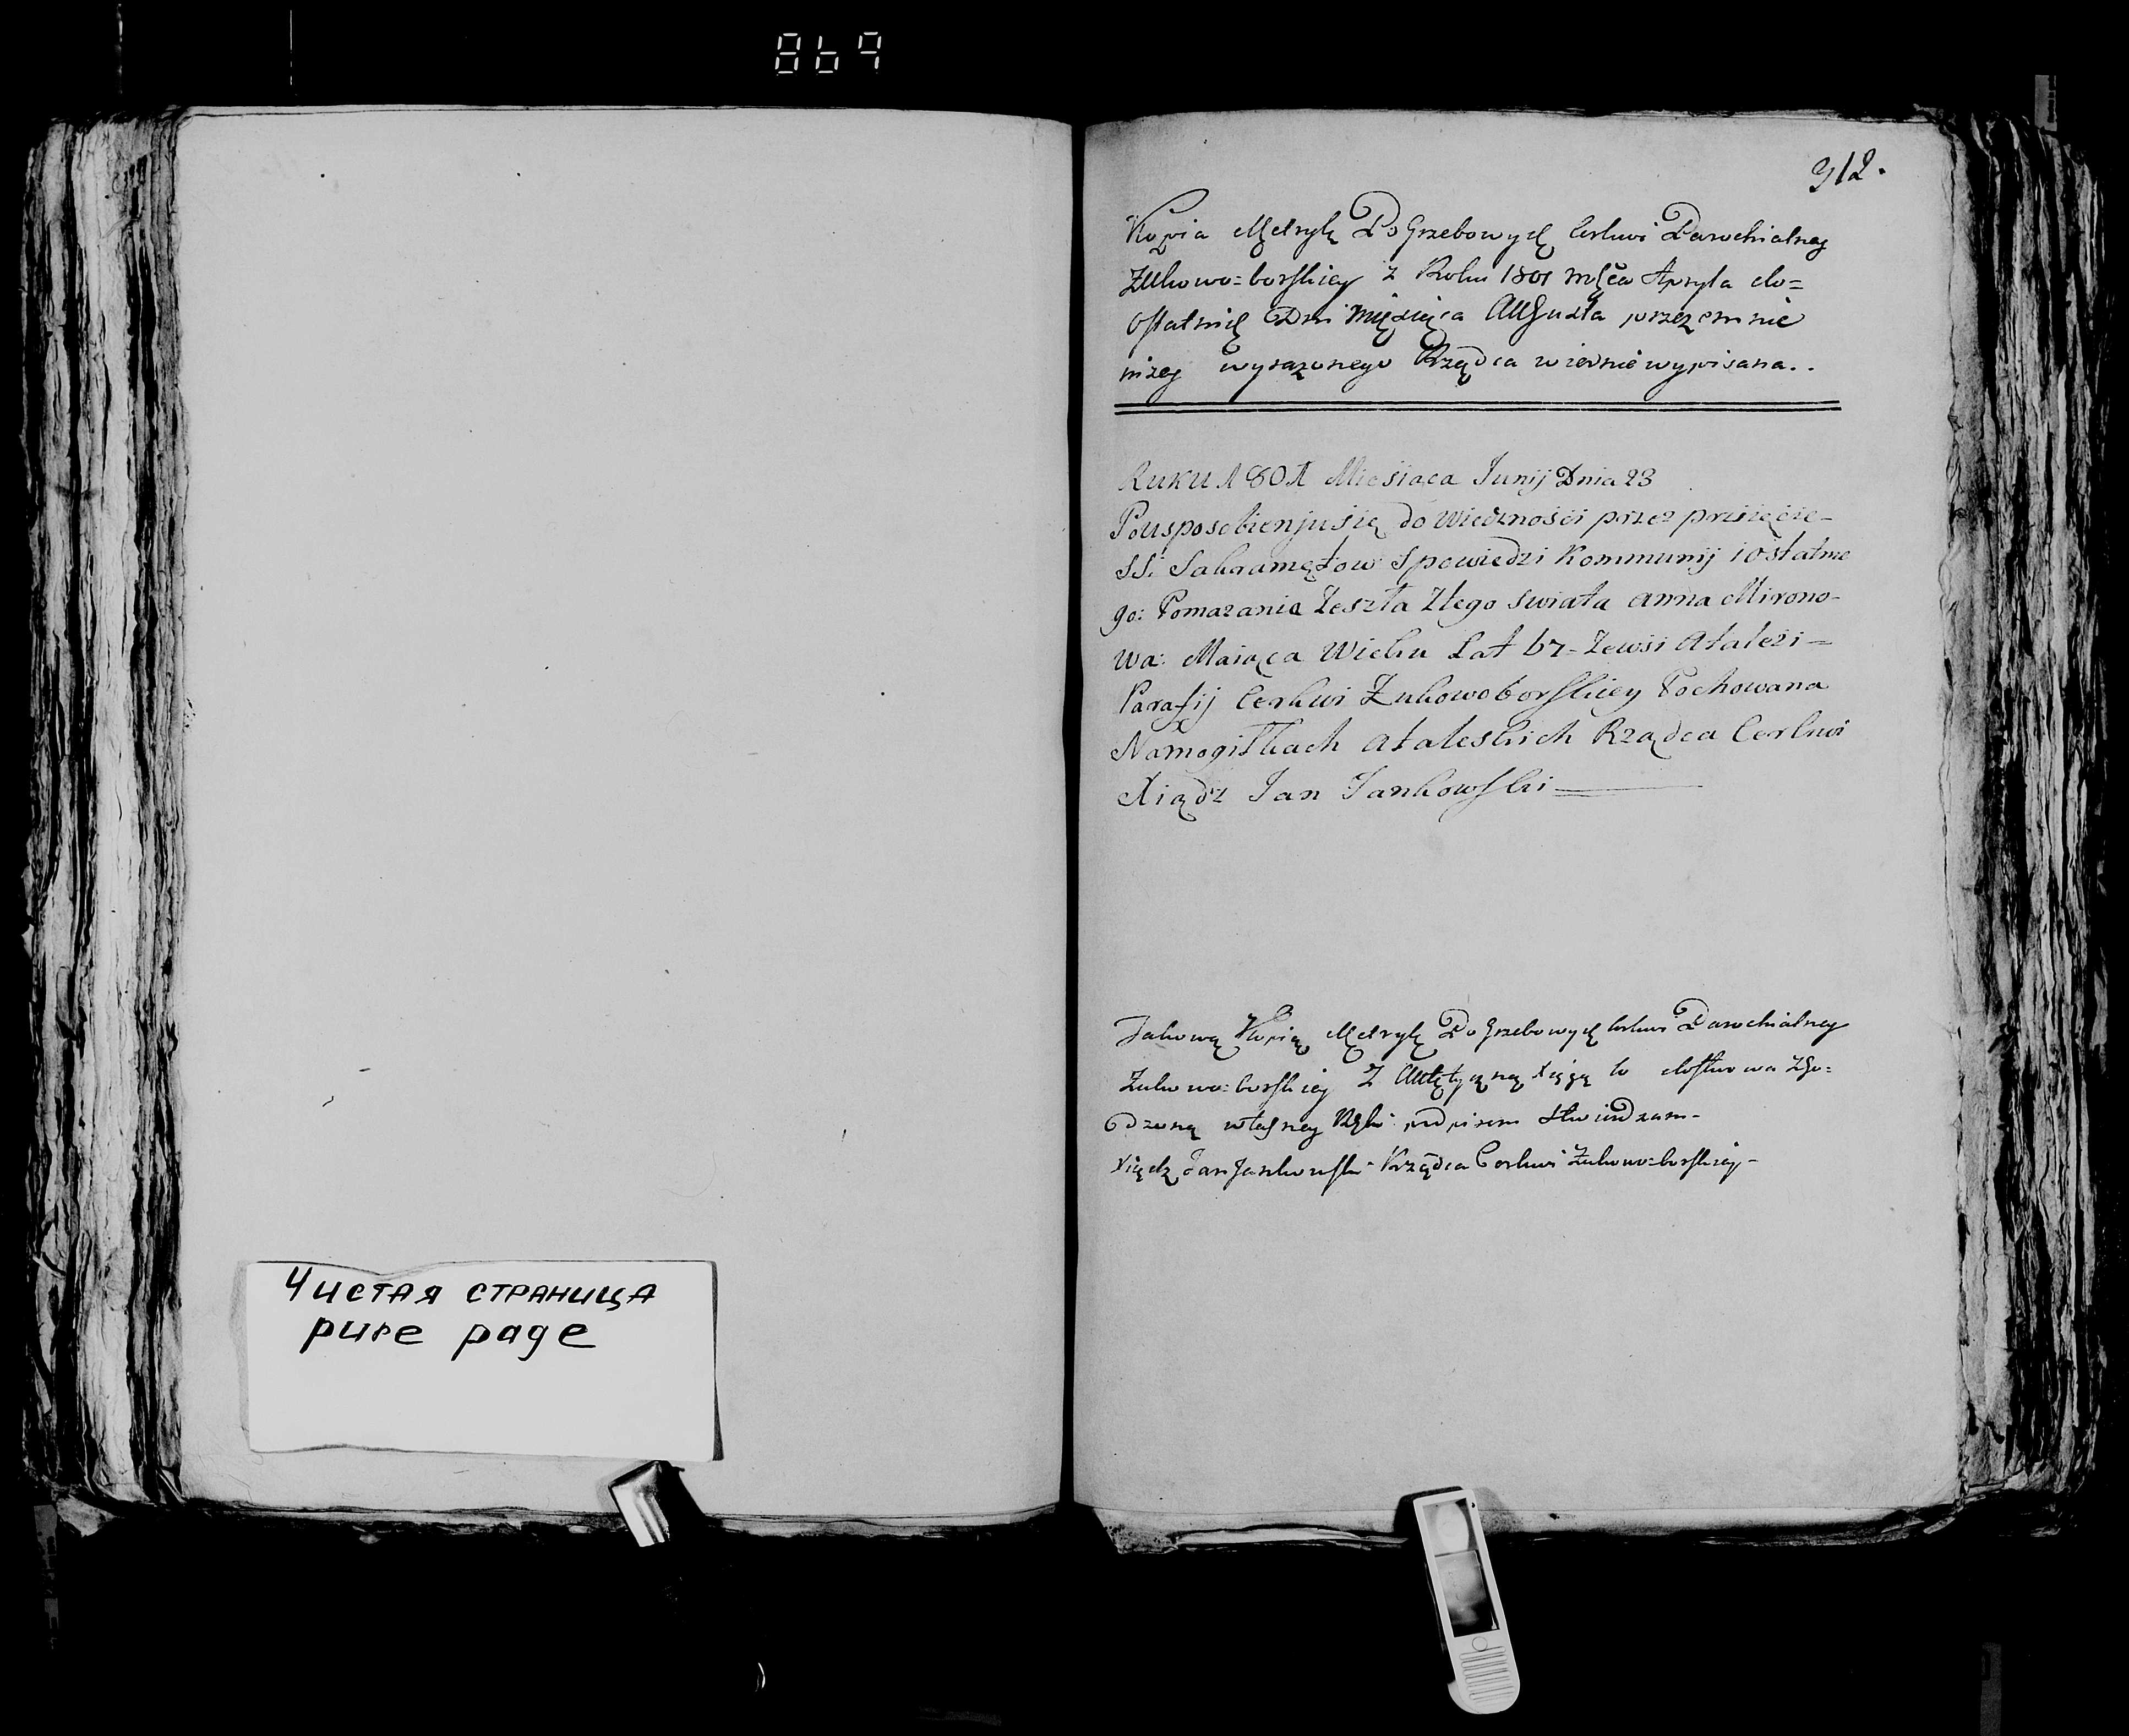 869
Чистая страница
pure page
312.
Kopia Metryk Pogrzebowych Cerkwi Parochialney
Zukowo=borskiey z Roku 1801 Msca Apryla do=
ostatnich Dni Miesiąca Augusta przezemnie
niżey wyrażonego Rządca wiernie wypisana..
Ruku 1801 Miesiąca Junij Dnia 23
Pousposobienjusię do Wiecznośći przez prziięcie-
SS. Sakramętow Spowiedzi Kommunij i ostatnie
go: Pomazania Zeszła Ztego Swiata Anna Mirono-
wa: Maiąca Wieku Lat 67- Zewsi Atalezi=
Parafij Cerkwi Zukowoborskiey Pochowana
Namogiłkach Ataleskich Rządca Cerkwi
Xiądz Jan Jankowski
Jakową Kopią Metryk Pogrzebowych Cerkwi Parochialney
Zukowo=borskiey Z Autętyczną Xięgą co dosłowa Zgo=
dzoną własney Ręki podpisem stwierdzam-
Xiądz Jan Jankowski Rządca Cerkwi Zukowo=borskiey-